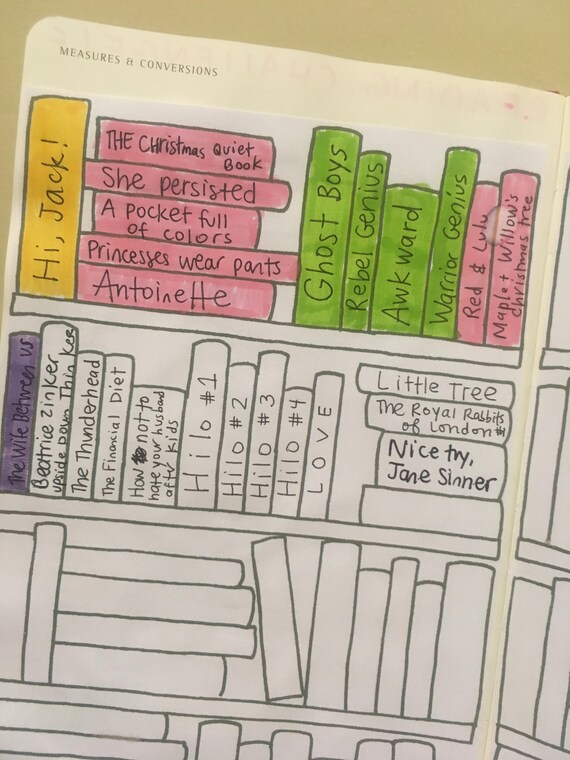 MEASURES & CONVERSIONS
Hi, Jack!
THE Christmas Quiet
Book
She persisted
A pocket full
of colors
Princesses wear pants
Antoinette
Ghost Boys
Rebel Genius
Awkward
Warrior Genius
Red & Lulu
Maple + Willow's
christmas tree
The Wife Between us
Beatrice Zinker
upside Down Thinker
The Thunderhead
The Financial Diet
How not to
hate your husband
after kids
Hilo #1
Hilo #2
Hilo #3
Hilo #4
LOVE
Little Tree
The Royal Rabbits
of London #1
Nice try,
Jane Sinner